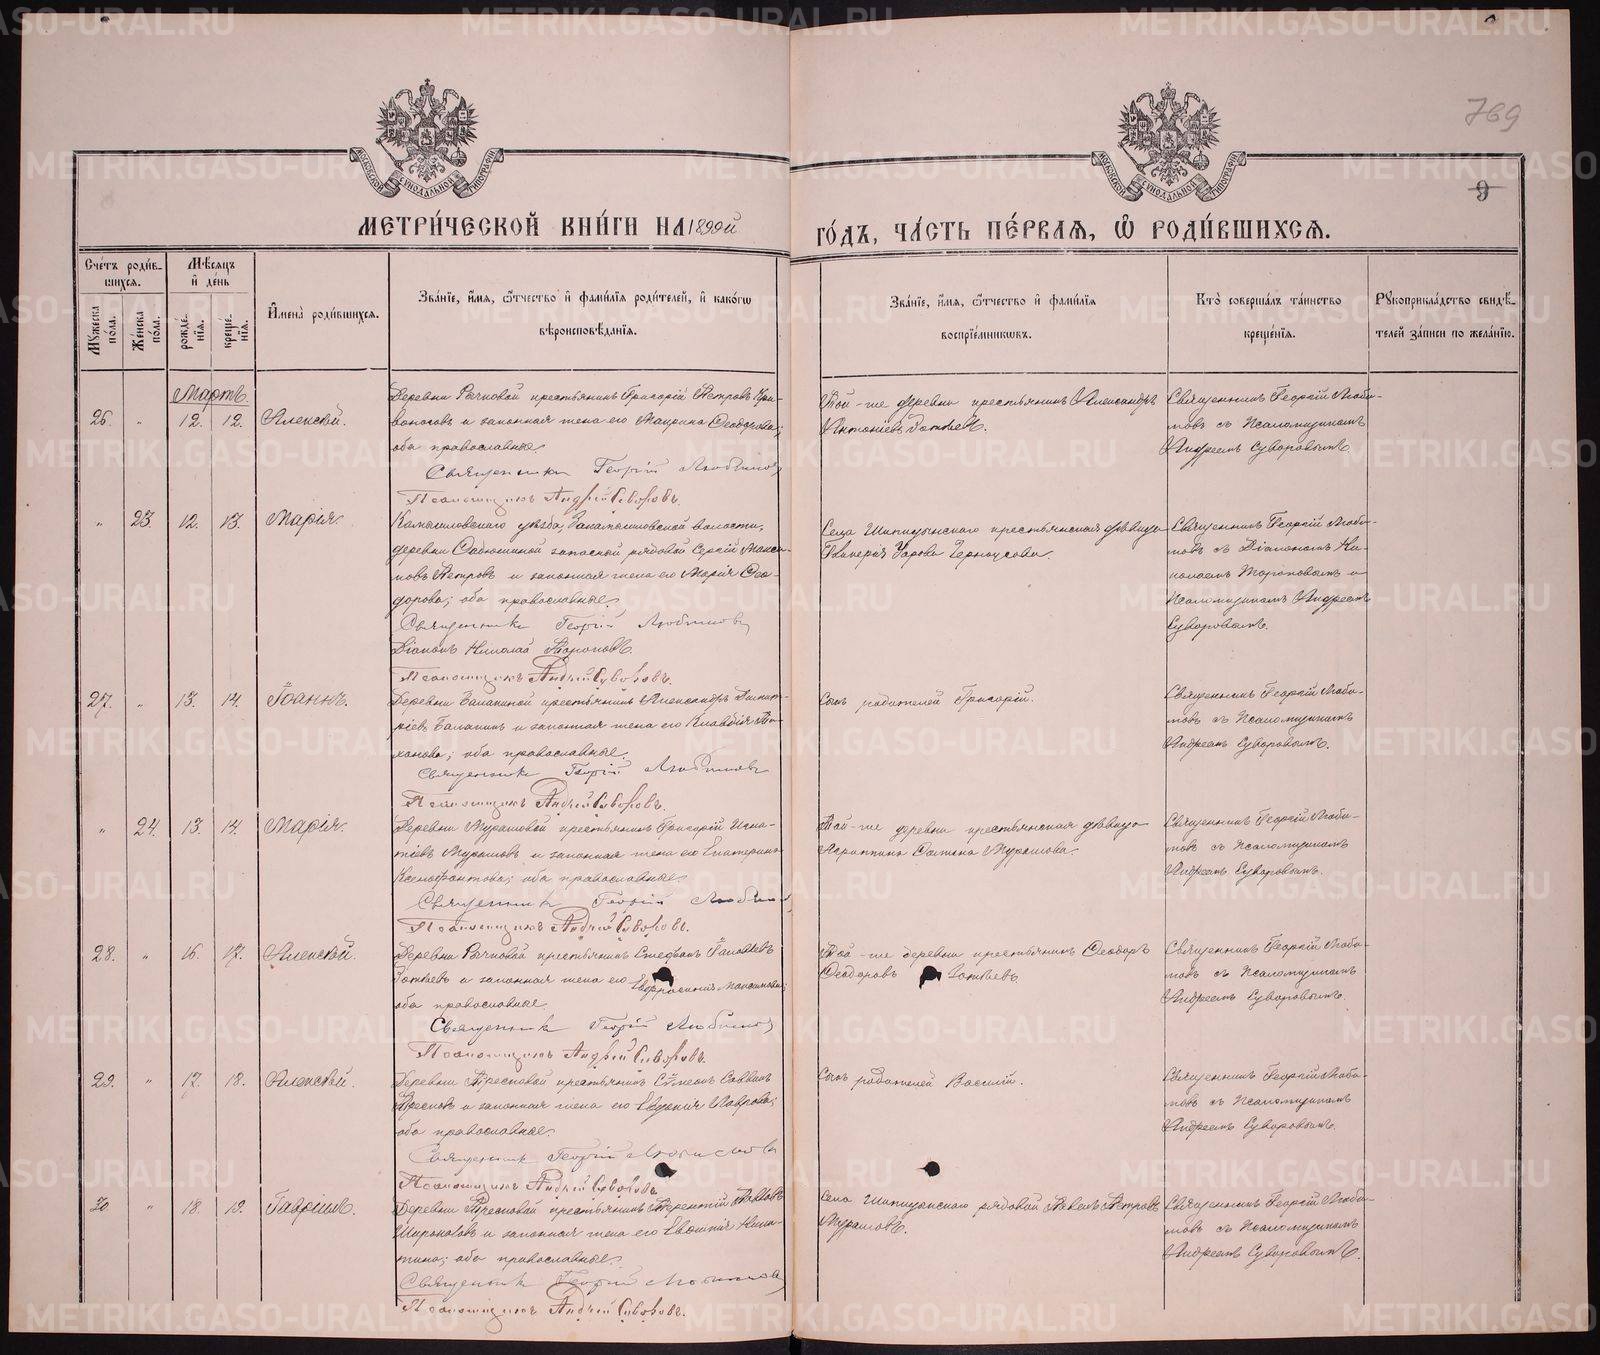 769
9
МОСКОВСКОЙ СѴНОДАЛЬНОЙ ТИПОГРАФІИ
МОСКОВСКОЙ СѴНОДАЛЬНОЙ ТИПОГРАФІИ
МЕТРИ́ЧЕСКОЙ КНИ́ГИ НА 1899й ГО́ДЪ, ЧА́СТЬ ПЕ́РВАЯ, Ѿ РОДИ́ВШИХСЯ.
Сче́тъ роди́вшихся.
Мꙋжеска по́ла.
Женска по́ла.
Мѣ́сяцъ и҆ де́нь
рожде́нїя.
креще́нїя.
И҆мена̀ роди́вшихся.
Зва́нїе, и҆́мя, ѻ҆́тчество и҆ фами́лїя роди́телей, и҆ како́гѡ вѣроисповѣ́данїя.
Зва́нїе, и҆́мя, ѻ҆́тчество и҆ фами́лїя воспрїе́мникѡвъ.
Кто̀ соверша́лъ та́инство креще́нїя.
Рꙋкоприкла́дство свидѣ́телей за́писи по жела́нїю.
Мартъ
26. " 12. 12. Алексѣй.
Деревни Рачковой крестьянинъ Григорій Петровъ Кри-
воноговъ и законная жена его Маирина Ѳеодорова;
оба православные.
Священникъ Георгій Любимовъ
Псаломщикъ Андрей Суворовъ.
Той-же деревни крестьянинъ Александръ
Антоніевъ Зотѣевъ.
Священникъ Георгій Люби-
мовъ съ Псаломщикомъ
Андреемъ Суворовымъ.
" 23. 12. 13. Марія.
Камышловскаго уѣзда, Закамышловской волости,
деревни запасный рядовой Сергій Макси-
мовъ Петровъ и законная жена его Марія Ѳео-
дорова; оба православные.
Священникъ Георгій Любимовъ
Діаконъ Николай Топорковъ.
Псаломщикъ Андрей Суворовъ.
Села Шипицынскаго крестьянская дѣвица
Гликерія
Священникъ Георгій Люби-
мовъ съ Діакономъ Ни-
колаемъ и
Псаломщикомъ Андреемъ
Суворовымъ.
27. " 13. 14. Іоаннъ.
Деревни Балакиной крестьянинъ Александръ Димит-
ріевъ Балакинъ и законная жена его Клавдія
оба православные.
Священникъ Георгій Любимовъ
Псаломщикъ Андрей Суворовъ.
Сынъ родителей Григорій.
Священникъ Георгій Люби-
мовъ съ Псаломщикомъ
Андреемъ Суворовымъ.
" 24. 13. 14. Марія.
Деревни Мурашовой крестьянинъ Григорій Игна-
тіевъ Мурашовъ и законная жена его Екатерина
Ксенофонтова; оба православные.
Священникъ Георгій Любимовъ
Псаломщикъ Андрей Суворовъ.
Той-же деревни крестьянская дѣвица
Агриппина Мурашова.
Священникъ Георгій Люби-
мовъ съ Псаломщикомъ
Андреемъ Суворовымъ.
28. " 16. 17. Алексѣй.
Деревни Рачковой крестьянинъ Стефанъ
Зотѣевъ и законная жена его Евфросинія Максимова;
оба православные.
Священникъ Георгій Любимовъ
Псаломщикъ Андрей Суворовъ.
Той-же деревни крестьянинъ Ѳеодоръ
Ѳеодоровъ Зотѣевъ.
Священникъ Георгій Люби-
мовъ съ Псаломщикомъ
Андреемъ Суворовымъ.
29. " 17. 18. Алексѣй.
Деревни Пресновой крестьянинъ Сѵмеонъ Саввинъ
Пресновъ и законная жена его Евдокія Лаврова;
оба православные.
Священникъ Георгій Любимовъ
Псаломщикъ Андрей Суворовъ.
Сынъ родителей Василій.
Священникъ Георгій Люби-
мовъ съ Псаломщикомъ
Андреемъ Суворовымъ.
30. " 18. 19. Гавріилъ.
Деревни Пресновой крестьянинъ Терентій Павловъ
Широковъ и законная жена его Евѳимія Ники-
тина; оба православные.
Священникъ Георгій Любимовъ
Псаломщикъ Андрей Суворовъ.
Села Шипицынскаго рядовой Павелъ Петровъ
Мурашовъ.
Священникъ Георгій Люби-
мовъ съ Псаломщикомъ
Андреемъ Суворовымъ.
METRIKI.GASO-URAL.RU